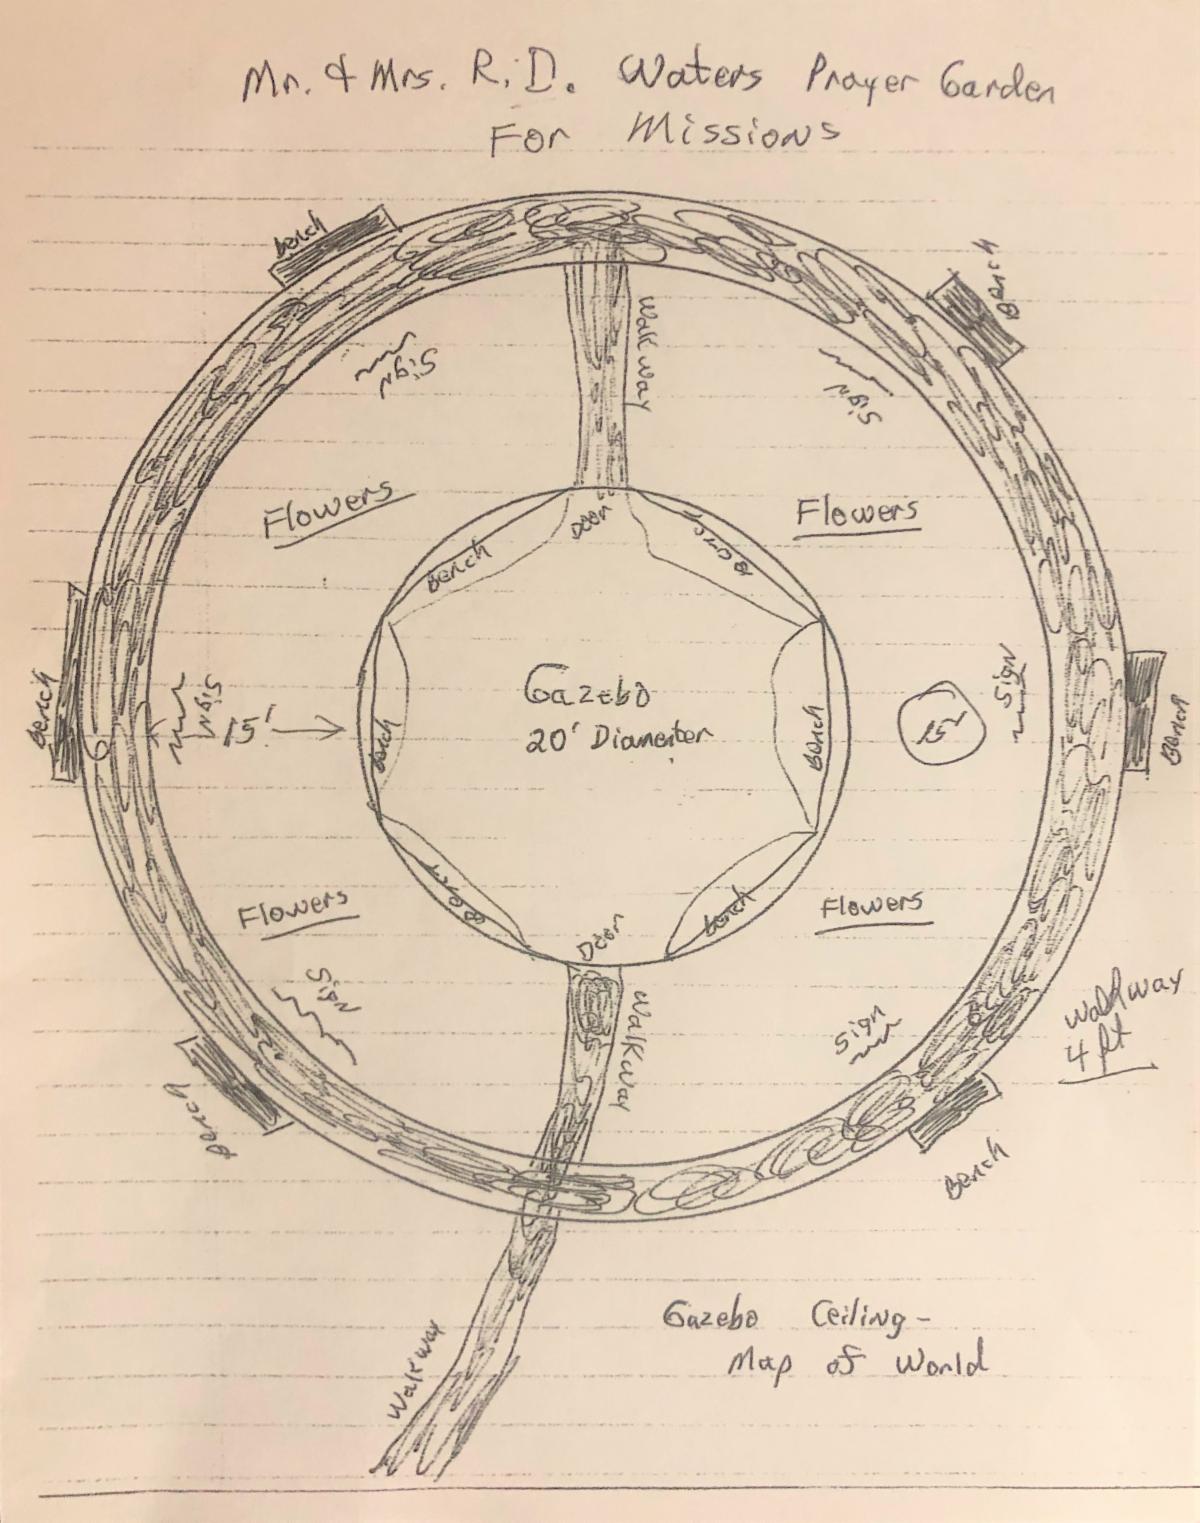 Mr. & Mrs. R.D. Waters Prayer Garden
For Missions
Bench
Bench
Walkway
Sign
Sign
Flowers
Flowers
Door
Bench
Bench
Gazebo
20' Diameter
Bench
Sign
15'
Bench
Bench
Sign
15'
Bench
Bench
Bench
Flowers
Door
Flowers
Sign
Walkway
Sign
Walkway
4 ft
Bench
Bench
Gazebo Ceiling -
Map of World
Walkway